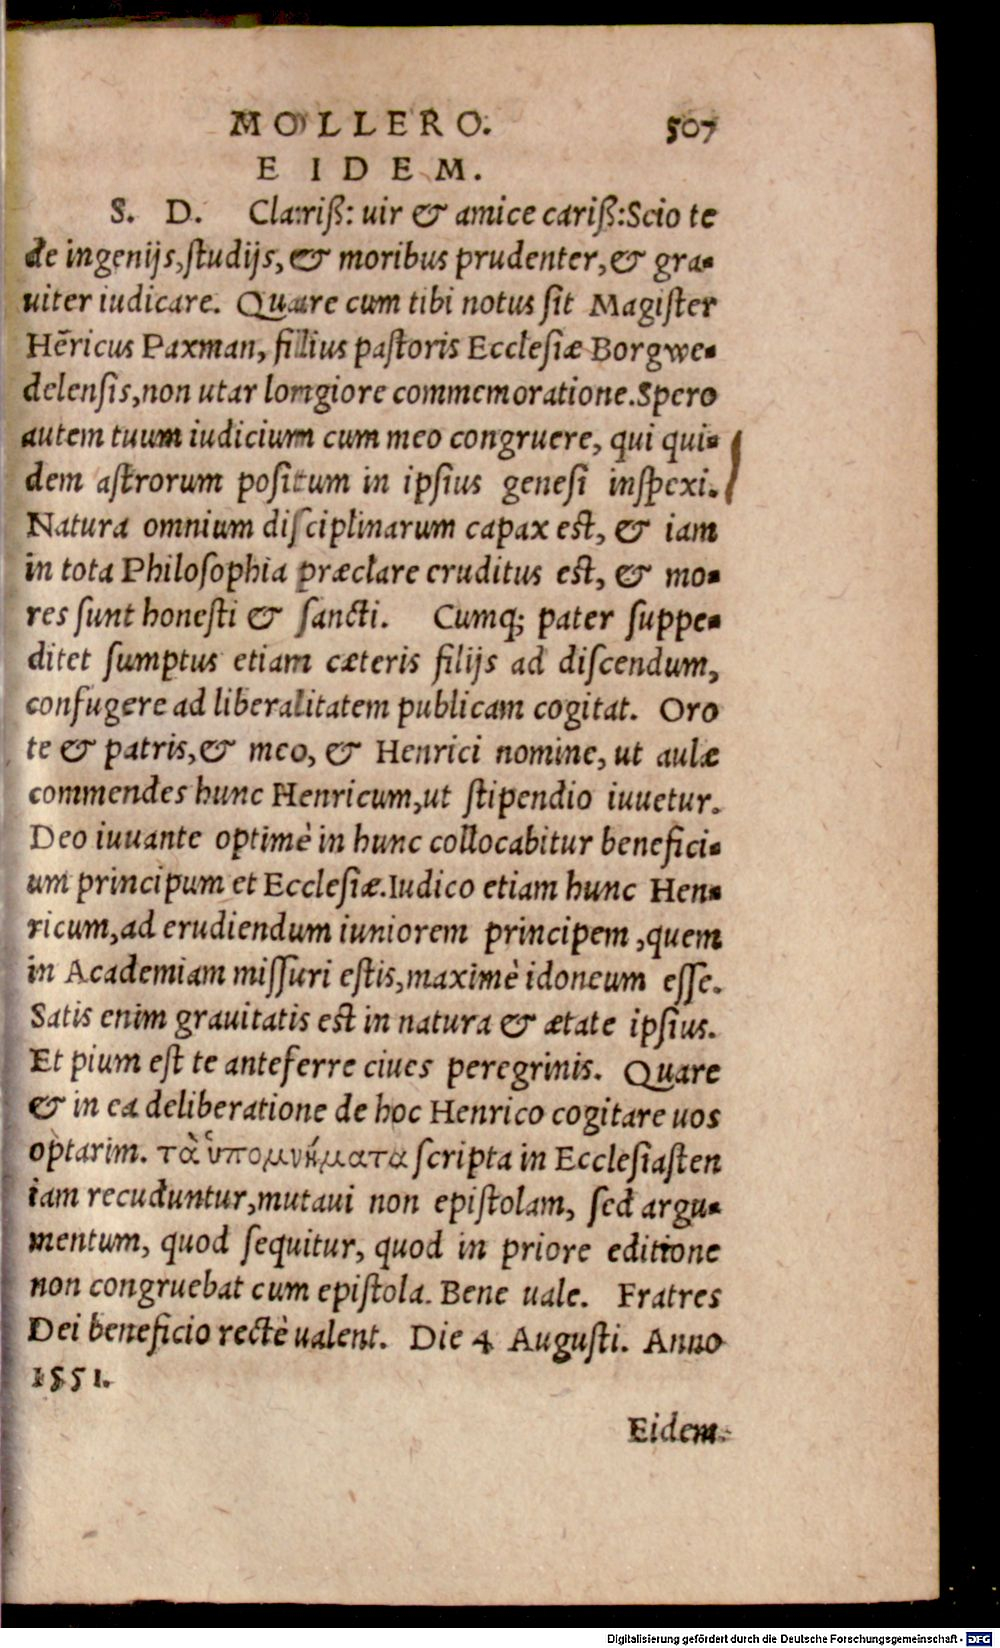 MOLLERO. 507
EIDEM.
S. D. Clariß: uir & amice cariß: Scio te
de ingenijs, studijs, & moribus prudenter, & gra-
uiter iudicare. Quare cum tibi notus sit Magister
Hēricus Paxman, filius pastoris Ecclesiæ Borgwe-
delensis, non utar longiore commemoratione. Spero
autem tuum iudicium cum meo congruere, qui qui-
dem astrorum positum in ipsius genesi inspexi.
Natura omnium disciplinarum capax est, & iam
in tota Philosophia præclare eruditus est, & mo-
res sunt honesti & sancti. Cumq; pater suppe-
ditet sumptus etiam cæteris filijs ad discendum,
confugere ad liberalitatem publicam cogitat. Oro
te & patris, & meo, & Henrici nomine, ut aulæ
commendes hunc Henricum, ut stipendio iuuetur.
Deo iuuante optimè in hunc collocabitur benefici-
um principum et Ecclesiæ. Iudico etiam hunc Hen-
ricum, ad erudiendum iuniorem principem, quem
in Academiam missuri estis, maximè idoneum esse.
Satis enim grauitatis est in natura & ætate ipsius.
Et pium est te anteferre ciues peregrinis. Quare
& in ea deliberatione de hoc Henrico cogitare uos
optarim. τὰ ὑπομνήματα scripta in Ecclesiasten
iam recuduntur, mutaui non epistolam, sed argu-
mentum, quod sequitur, quod in priore editione
non congruebat cum epistola. Bene uale. Fratres
Dei beneficio rectè ualent. Die 4 Augusti. Anno
1551.
Eidem.
Digitalisierung gefördert durch die Deutsche Forschungsgemeinschaft - DFG